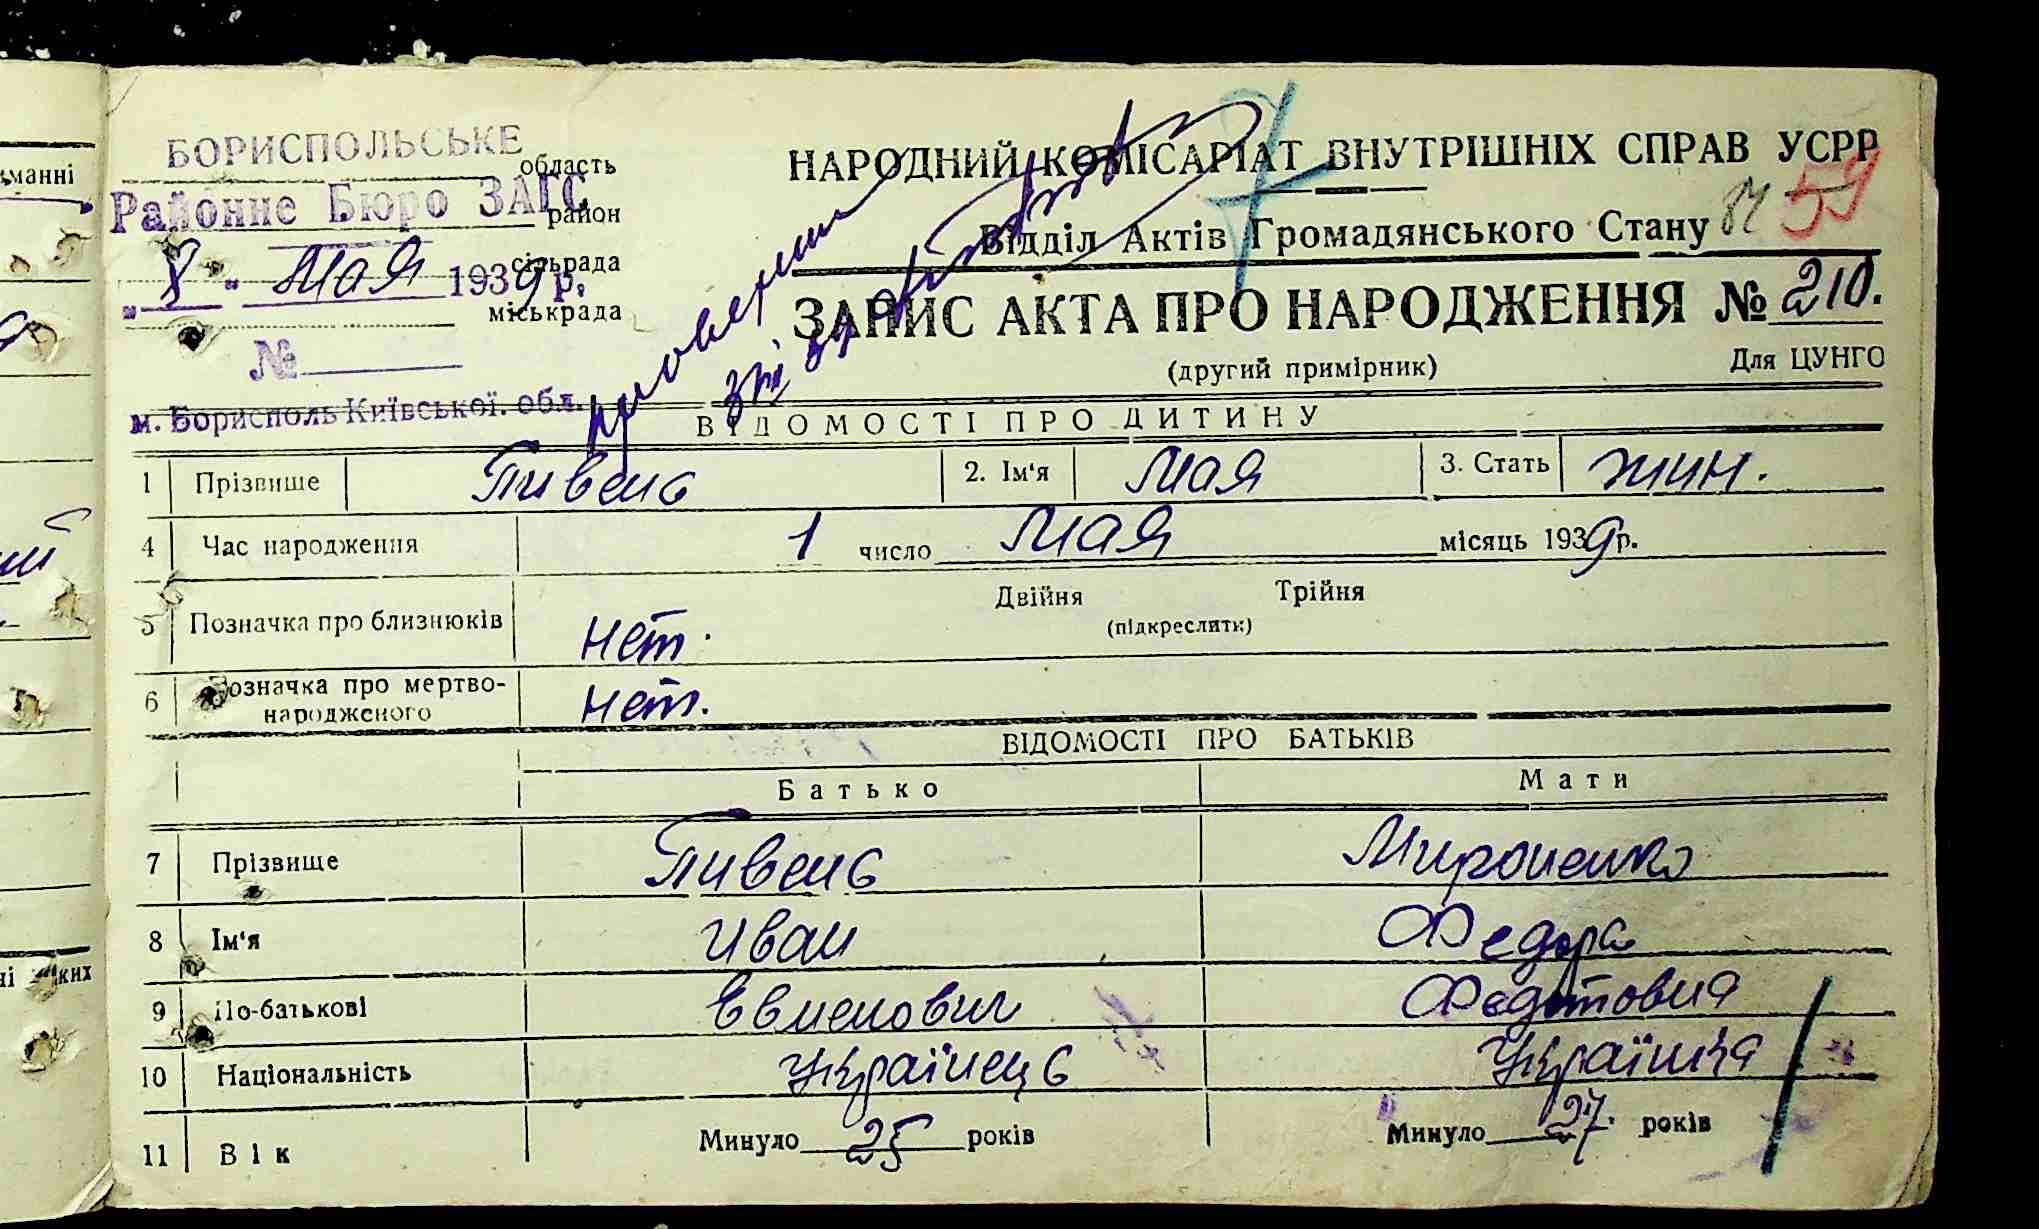 манні
ий
ні яких
БОРИСПОЛЬСЬКЕ
область
Районне Бюро ЗАГС
район
сільрада
"8" Мая 1939 р.
міськрада
№
м. Борисполь Київської обл.
НАРОДНИЙ КОМІСАРІАТ ВНУТРІШНІХ СПРАВ УСРР
7
59
Відділ Актів Громадянського Стану
ЗАПИС АКТА ПРО НАРОДЖЕННЯ № 210.
(другий примірник)
Для ЦУНГО
ВІДОМОСТІ ПРО ДИТИНУ
1 Прізвише Пивень 2. Ім'я Мая 3. Стать жин.
4 Час народження 1 число Мая місяць 1939 р.
Двійня Трійня
5 Позначка про близнюків нет. (підкреслить)
6 Позначка про мертво-
народженого нет.
ВІДОМОСТІ ПРО БАТЬКІВ
Батько Мати
7 Прізвище Пивень Мироненко
8 Ім'я Иван Федора
9 По-батькові Евменович Федотовна
10 Національність Українець Українка
11 Вік Минуло 25 років Минуло 27. років